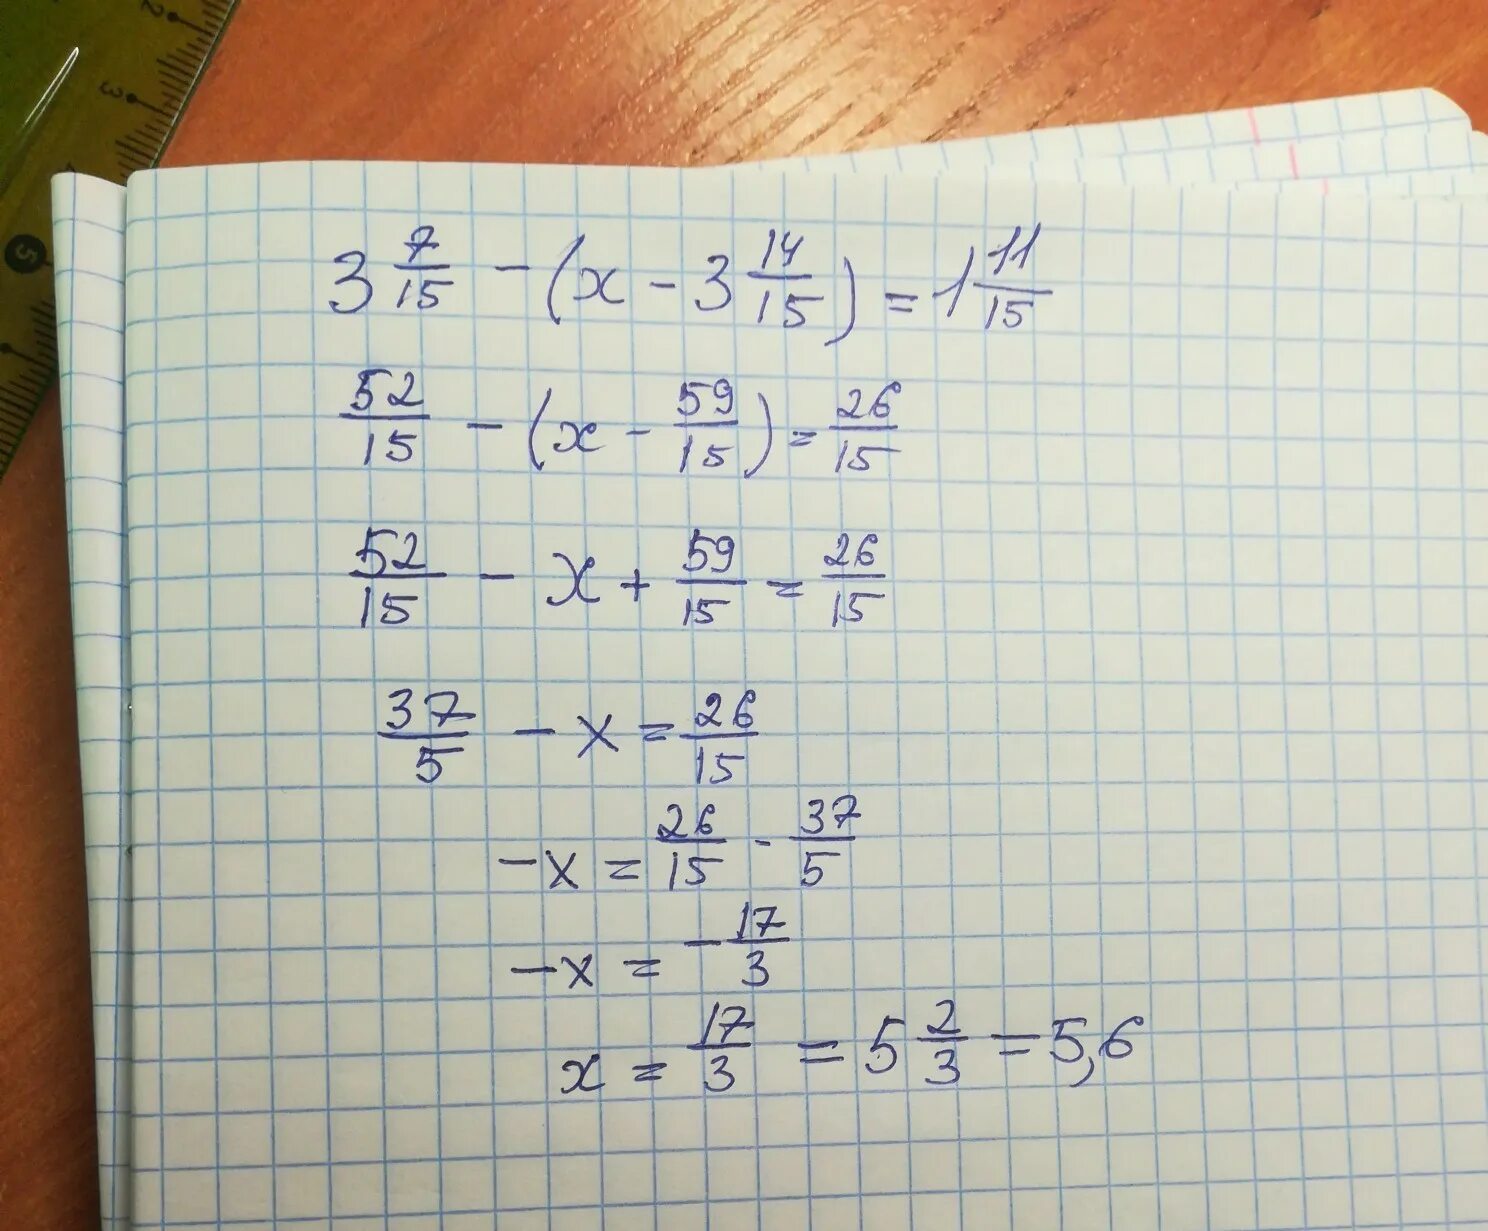 2
3
5
3 7/15 - (x - 3 14/15) = 1 11/15
52/15 - (x - 59/15) = 26/15
52/15 - x + 59/15 = 26/15
37/5 - x = 26/15
-x = 26/15 - 37/5
-x = -17/3
x = 17/3 = 5 2/3 = 5,6